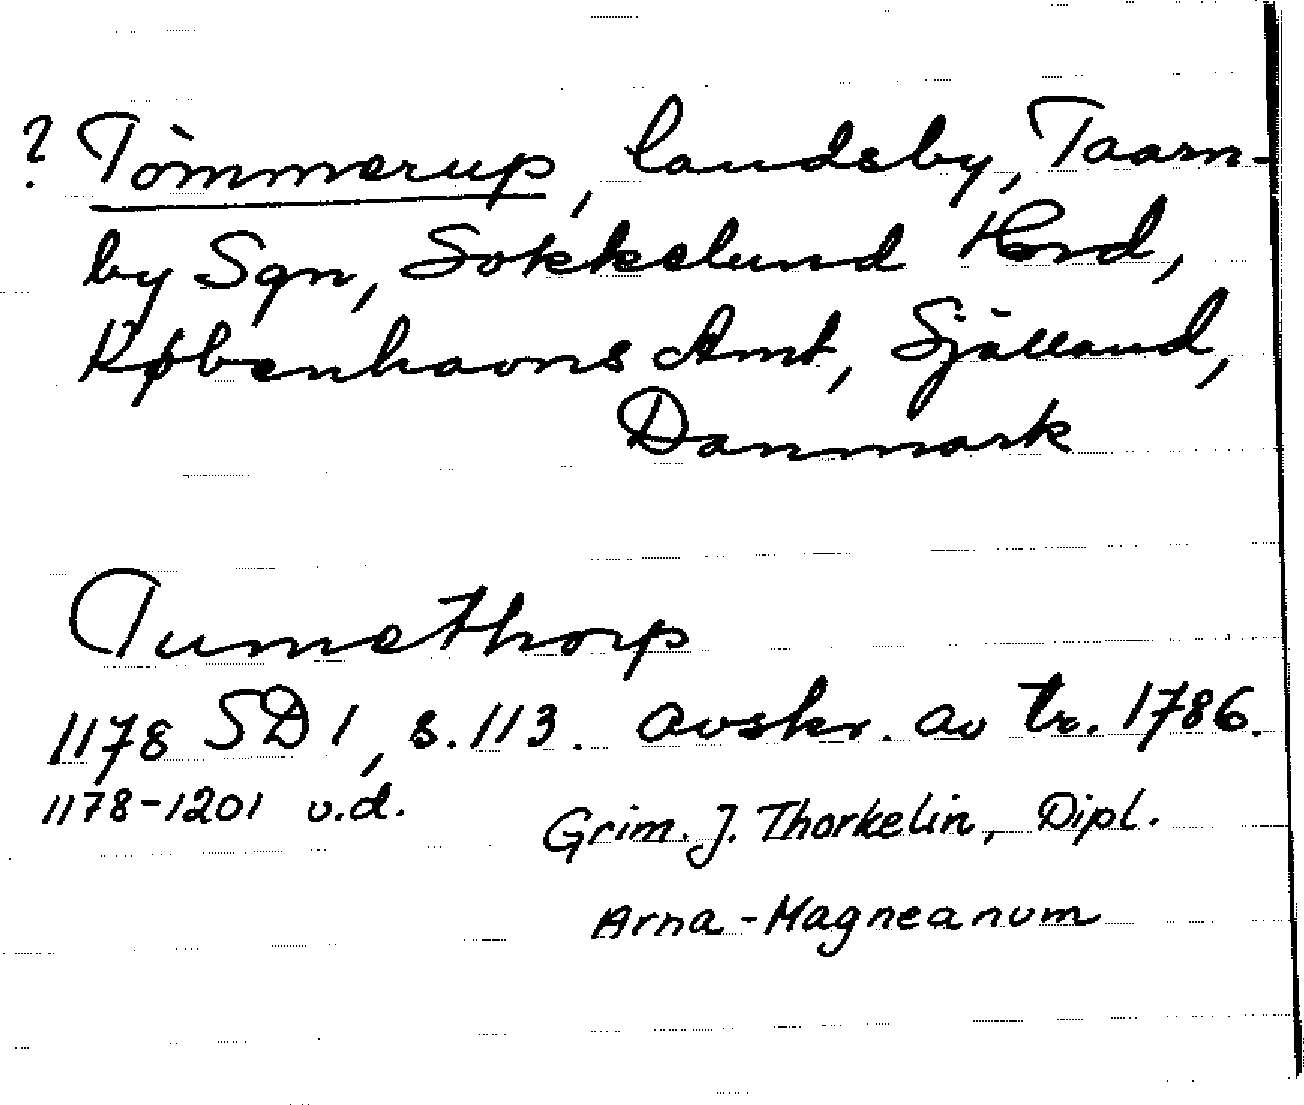 ? Tömmerup, landsby, Taarn-
by Sgn, Sokkelund Hrd,
Københavns Amt, Själland,
Danmark
Tumethorp
1178 SD 1, s. 113. avskr. av tr. 1786.
1178-1201 u.d.
Grim. J. Thorkelin, Dipl.
Arna-Magneanum